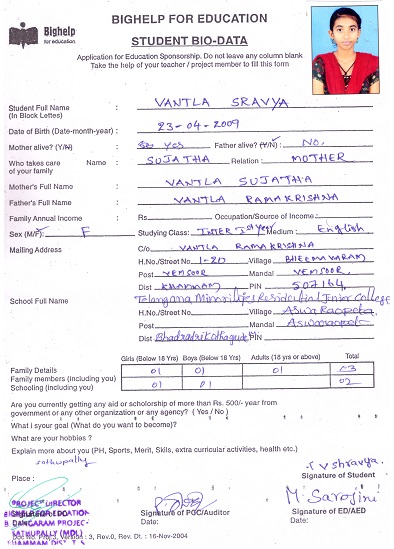 BIGHELP FOR EDUCATION
Bighelp
for education.
STUDENT BIO-DATA
Application for Education Sponsorship. Do not leave any column blank
Take the help of your teacher / project member to fill this form
Student Full Name : VANTLA SRAVYA
(In Block Lettes)
Date of Birth (Date-month-year) : 23-04-2009
Mother alive? (Y/N) : Yes Father alive? (Y/N) : NO.
Who takes care Name : SUJATHA Relation : MOTHER
of your family
Mother's Full Name : VANTLA SUJATHA
Father's Full Name : VANTLA RAMAKRISHNA
Family Annual Income : Rs. Occupation/Source of Income:
Sex (M/F): F Studying Class: INTER Ist year Medium : English
Mailing Address C/o VANTLA RAMAKRISHNA
H.No./Street No 1-20 Village BHEEMAVARAM
Post VEMSOOR Mandal VEMSOOR,
Dist KHAMMAM PIN 507164,
School Full Name Telangana Minorities Residential Inter College
H.No./Street No. Village Aswa Raopeta,
Post Mandal Aswaraopeta
Dist Bhadradri Kothagudem PIN
Girls (Below 18 Yrs) Boys (Below 18 Yrs) Adults (18 yrs or above) Total
Family Details
Family members (including you) 01 01 01 03
Schooling (including you) 01 01 02
Are you currently getting any aid or scholarship of more than Rs. 500/- year from
government or any other organization or any agency? ( Yes / No )
What i syour goal (What do you want to become)?
What are your hobbies ?
Explain more about you (PH, Sports, Merit, Skils, extra curricular activities, health etc.)
sathupally
Place :
v shravya
Signature of Student
PROJECT DIRECTOR
BIGHELP FOR EDUCATION
B. GANGARAM PROJECT
SATHUPALLY (MDL)
KHAMMAM DIST
Date:
Signature of PGC/Auditor
Date:
M. Sarojini
Signature of ED/AED
Date:
Version : 3, Rev.0, Rev. Dt. : 16-Nov-2004